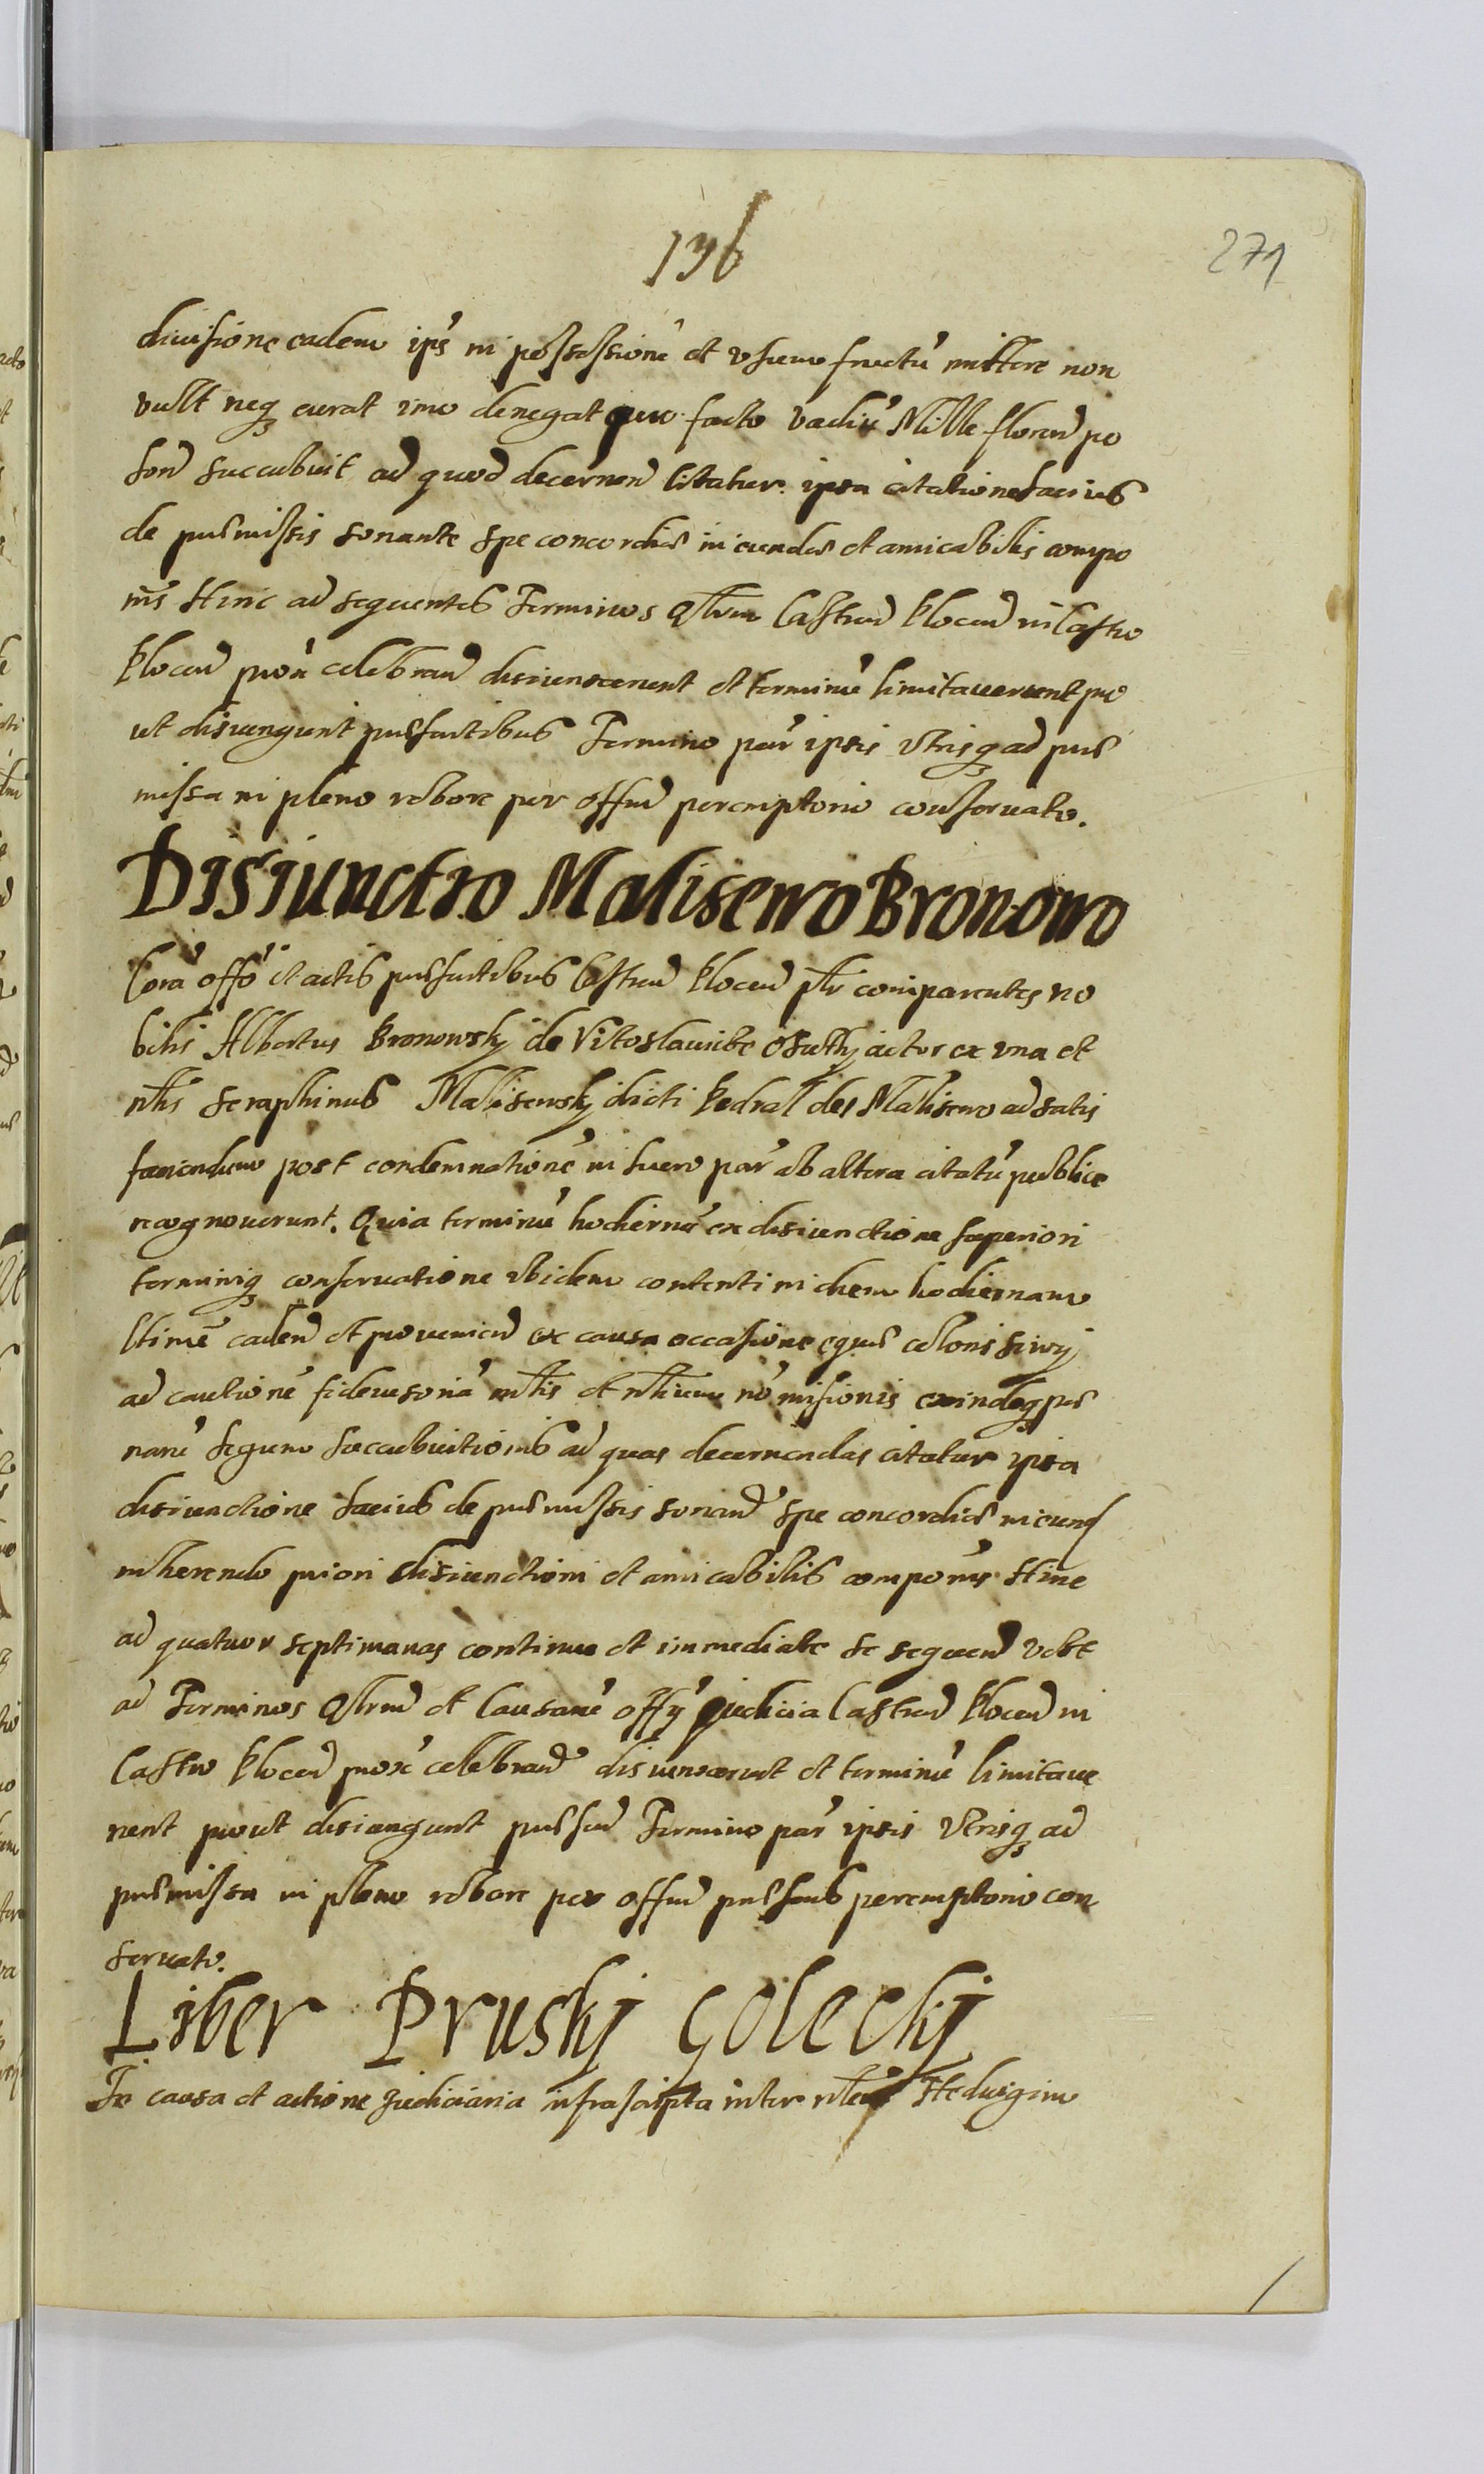 196
271
divisione eadem ips in possessione et usum fructu mittere non
vult neq curat imo denegat quo facto vadiu Mille floren po
lon succubuit ad quod decernen citatur ipsa citatione latius
de praemissis sonante spe concordiae ineundae et amicabilis compo
nis Hinc ad sequentes Terminos Castren Plocen in Castro
Plocen prox celebran disiunxerunt et terminu limitaverunt pro
ut disiungunt praesentibus Termino par ipsis utrisq ad prae
missa in pleno robore per offm peremptorio conservato.
Disiunctio Malisewo Bronowo
Cora offo et actis praesentibus Castren Plocen plr comparentes no
bilis Albertus Bronowskj de Vitoslavicze actor ex una et
nlis Seraphinus Malisewskj dicti Pedral de Malisewo ad satis
faciendum post condemnatione in luero par ab altera citatu publice
recognoverunt. Quia terminu hodiernu ex disiunctione superiori
terminiq conservatione ibidem contenti in diem hodiernam
ltime caden et provenien ex causa occasione equae coloris siwÿ
ad cautione fideiusoria nlis et nlium no misionis exindeq pae
naru seque succubuitionib ad quas decernendas citatur ipsa
disiunctione latius de praemissis sonan spe concordiae ineund
inherendo priori disiunctioni et amicabilis componis Hinc
ad quatuor septimanas continue et immediate se sequen
ad Terminos et Causaru offÿ Judicia Castren Plocen in
Castro Plocen prox celebran disiunxerunt et terminu limitave
runt prout disiungunt praesen Termino par ipsis utrisq ad
praemissa in pleno robore per offm praesens peremptorio con
servato.
Liber Pruskj Goleckj
In causa et actione Judiciaria infrascripta inter Hedvigim